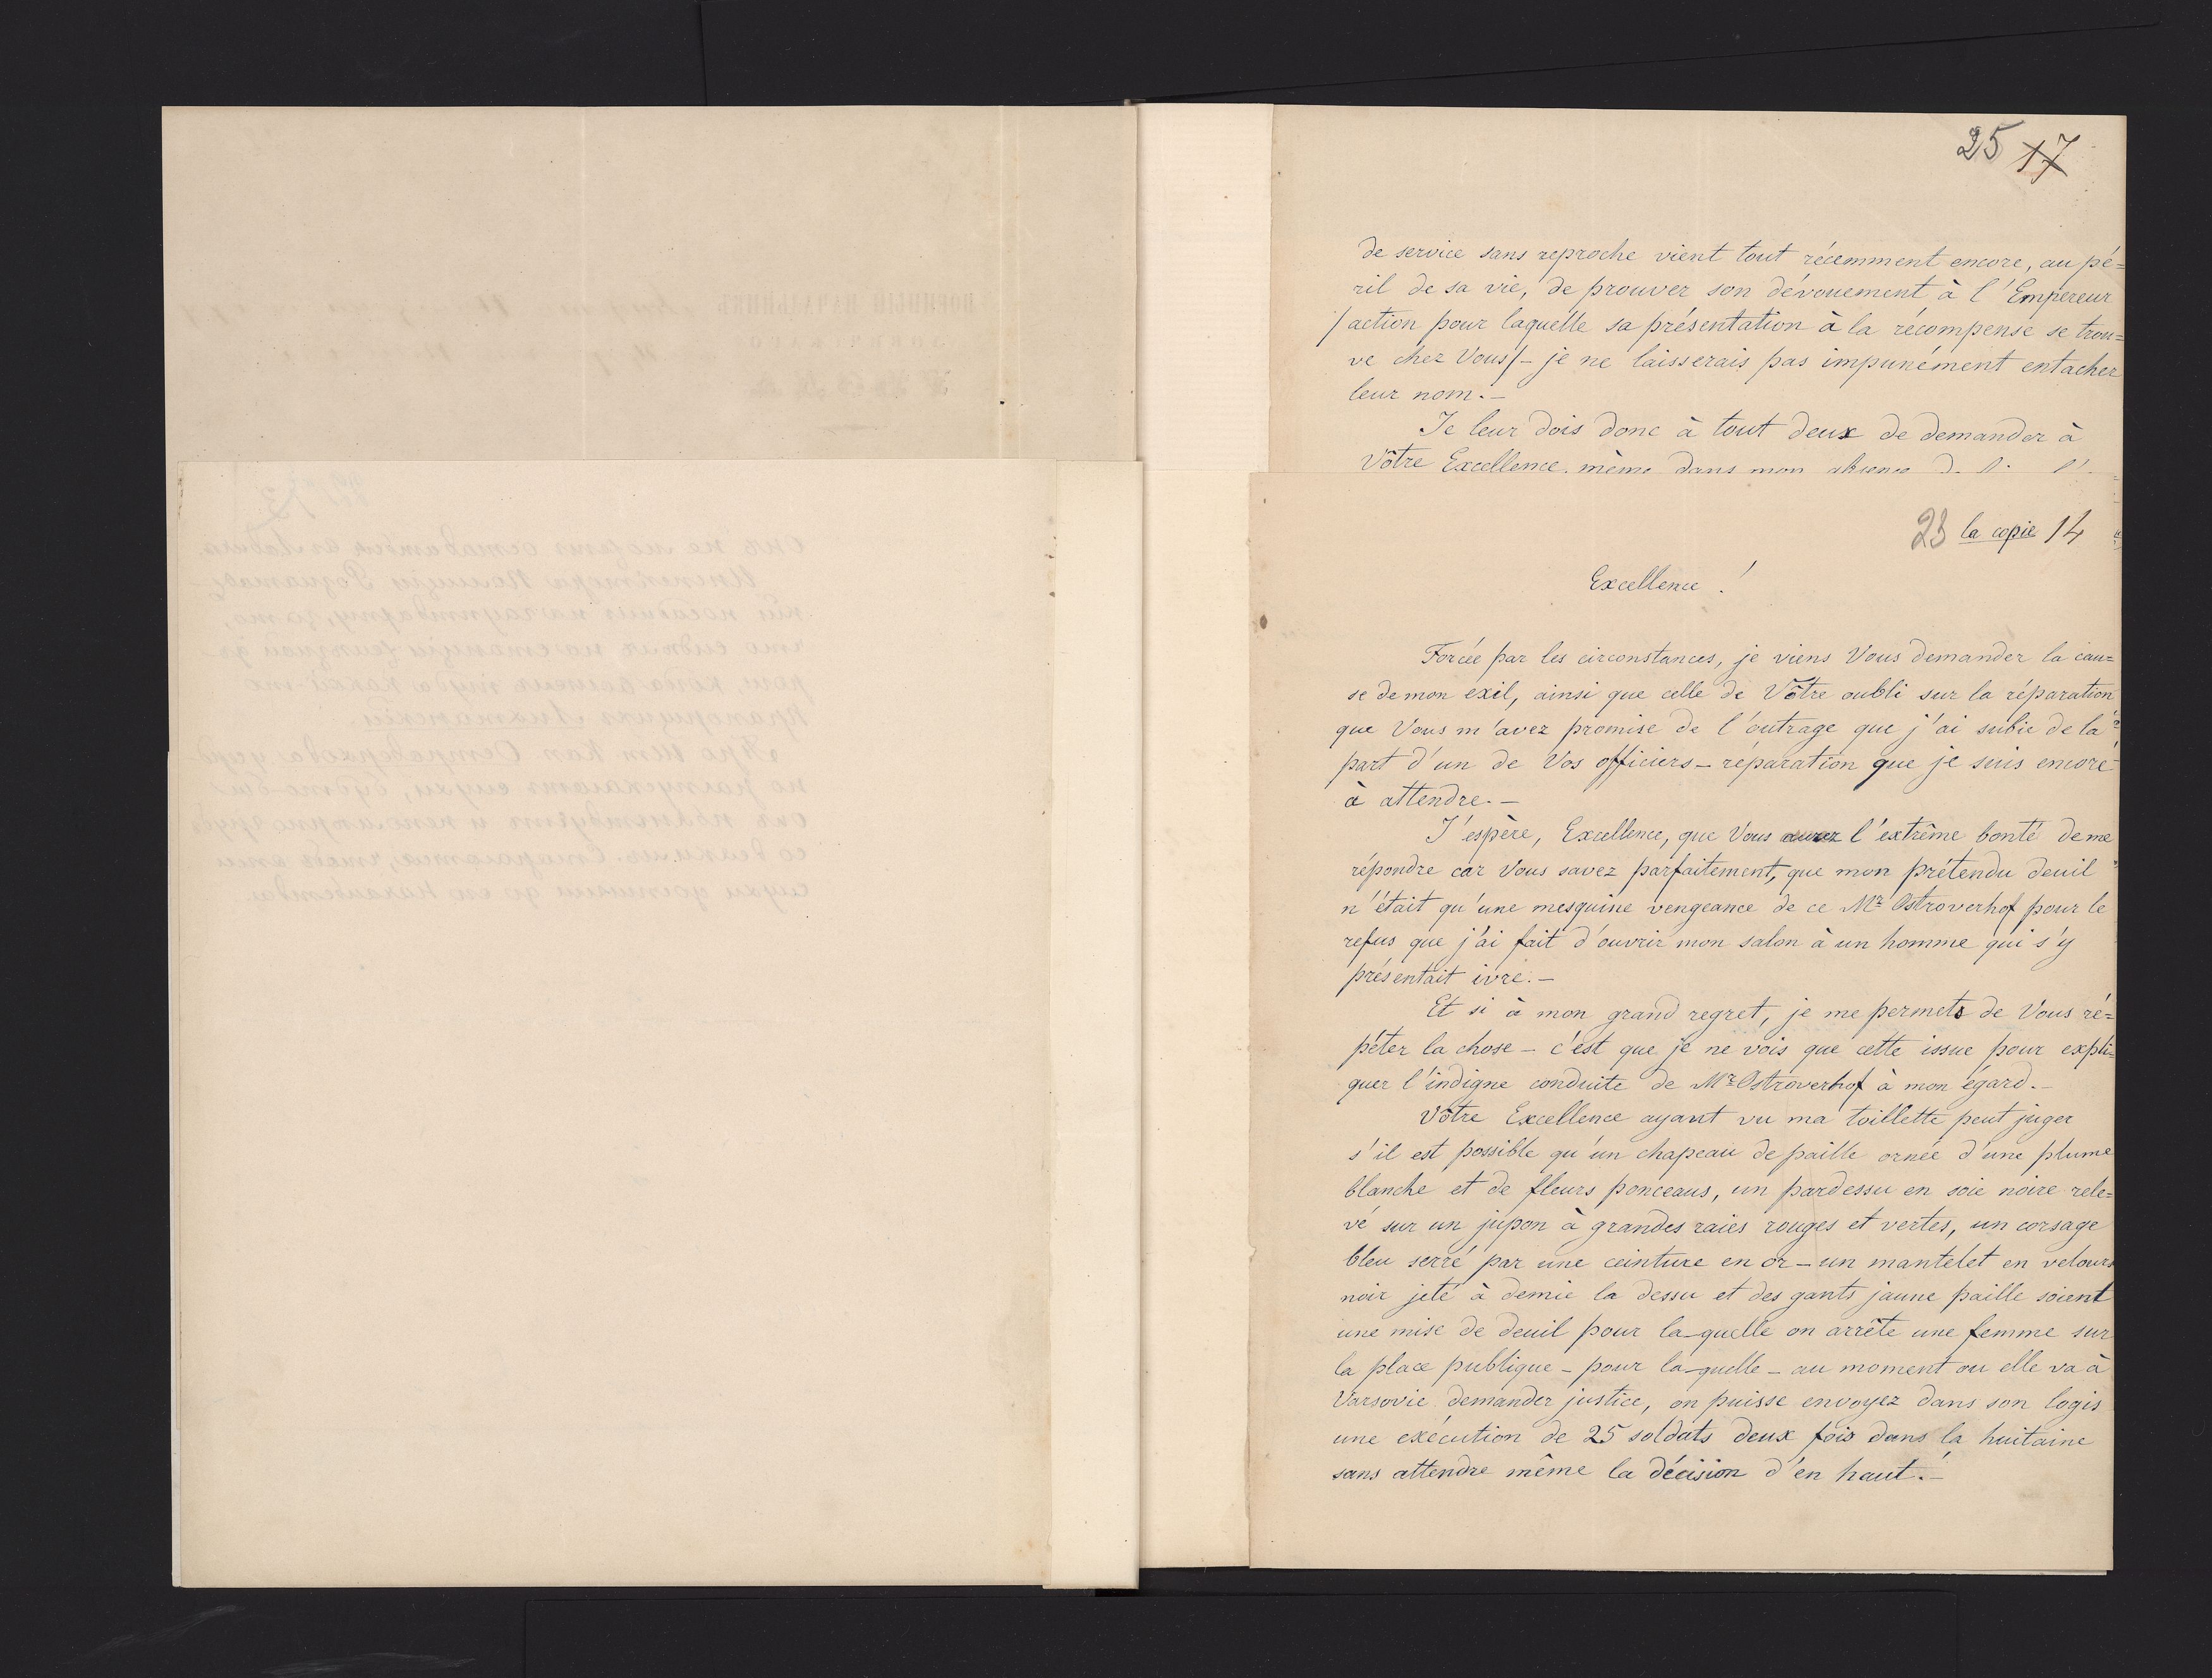 25 17
de service sans reproche vient tout récemment encore, au pé=
ril de sa vie, de prouver son dévouement à l'Empereur
/action pour laquelle sa présentation à la récompense se trou=
ve chez Vous/ – je ne laisserais pas impunément entacher
leur nom. –
Je leur dois donc à tout deux de demander à
Vôtre Excellence, même dans mon absence
23 la copie 14
Excellence!
Forcée par les circonstances, je viens Vous demander la cau=
se de mon exil, ainsi que celle de Vôtre oubli sur la réparation
que Vous m'avez promise de l'outrage que j'ai subie de la
part d'un de Vos officiers – réparation que je suis encore
à attendre. –
J'espère, Excellence, que Vous aurez l'extrême bonté de me
répondre car Vous savez parfaitement, que mon prétendu deuil
n'était qu'une mesquine vengeance de ce Mr Ostroverhof pour le
refus que j'ai fait d'ouvrir mon salon à un homme qui s'y
présentait ivre. –
Et si à mon grand regret, je me permets de Vous ré=
péter la chose – c'est que je ne vois que cette issue pour expli=
quer l'indigne conduite de Mr Ostroverhof à mon égard. –
Vôtre Excellence ayant vu ma toillette peut juger
s'il est possible qu'un chapeau de paille ornée d'une plume
blanche et de fleurs ponceaus, un pardessu en soie noire rele=
vé sur un jupon à grandes raies rouges et vertes, un corsage
bleu serré par une ceinture en or – un mantelet en velours
noir jeté à demie la dessu et des gants jaune paille soient
une mise de deuil pour la quelle on arrête une femme sur
la place publique – pour la quelle – au moment ou elle va à
Varsovie demander justice, on puisse envoyez dans son logis
une exécution de 25 soldats deux fois dans la huitaine
sans attendre même la décision d'en haut! –